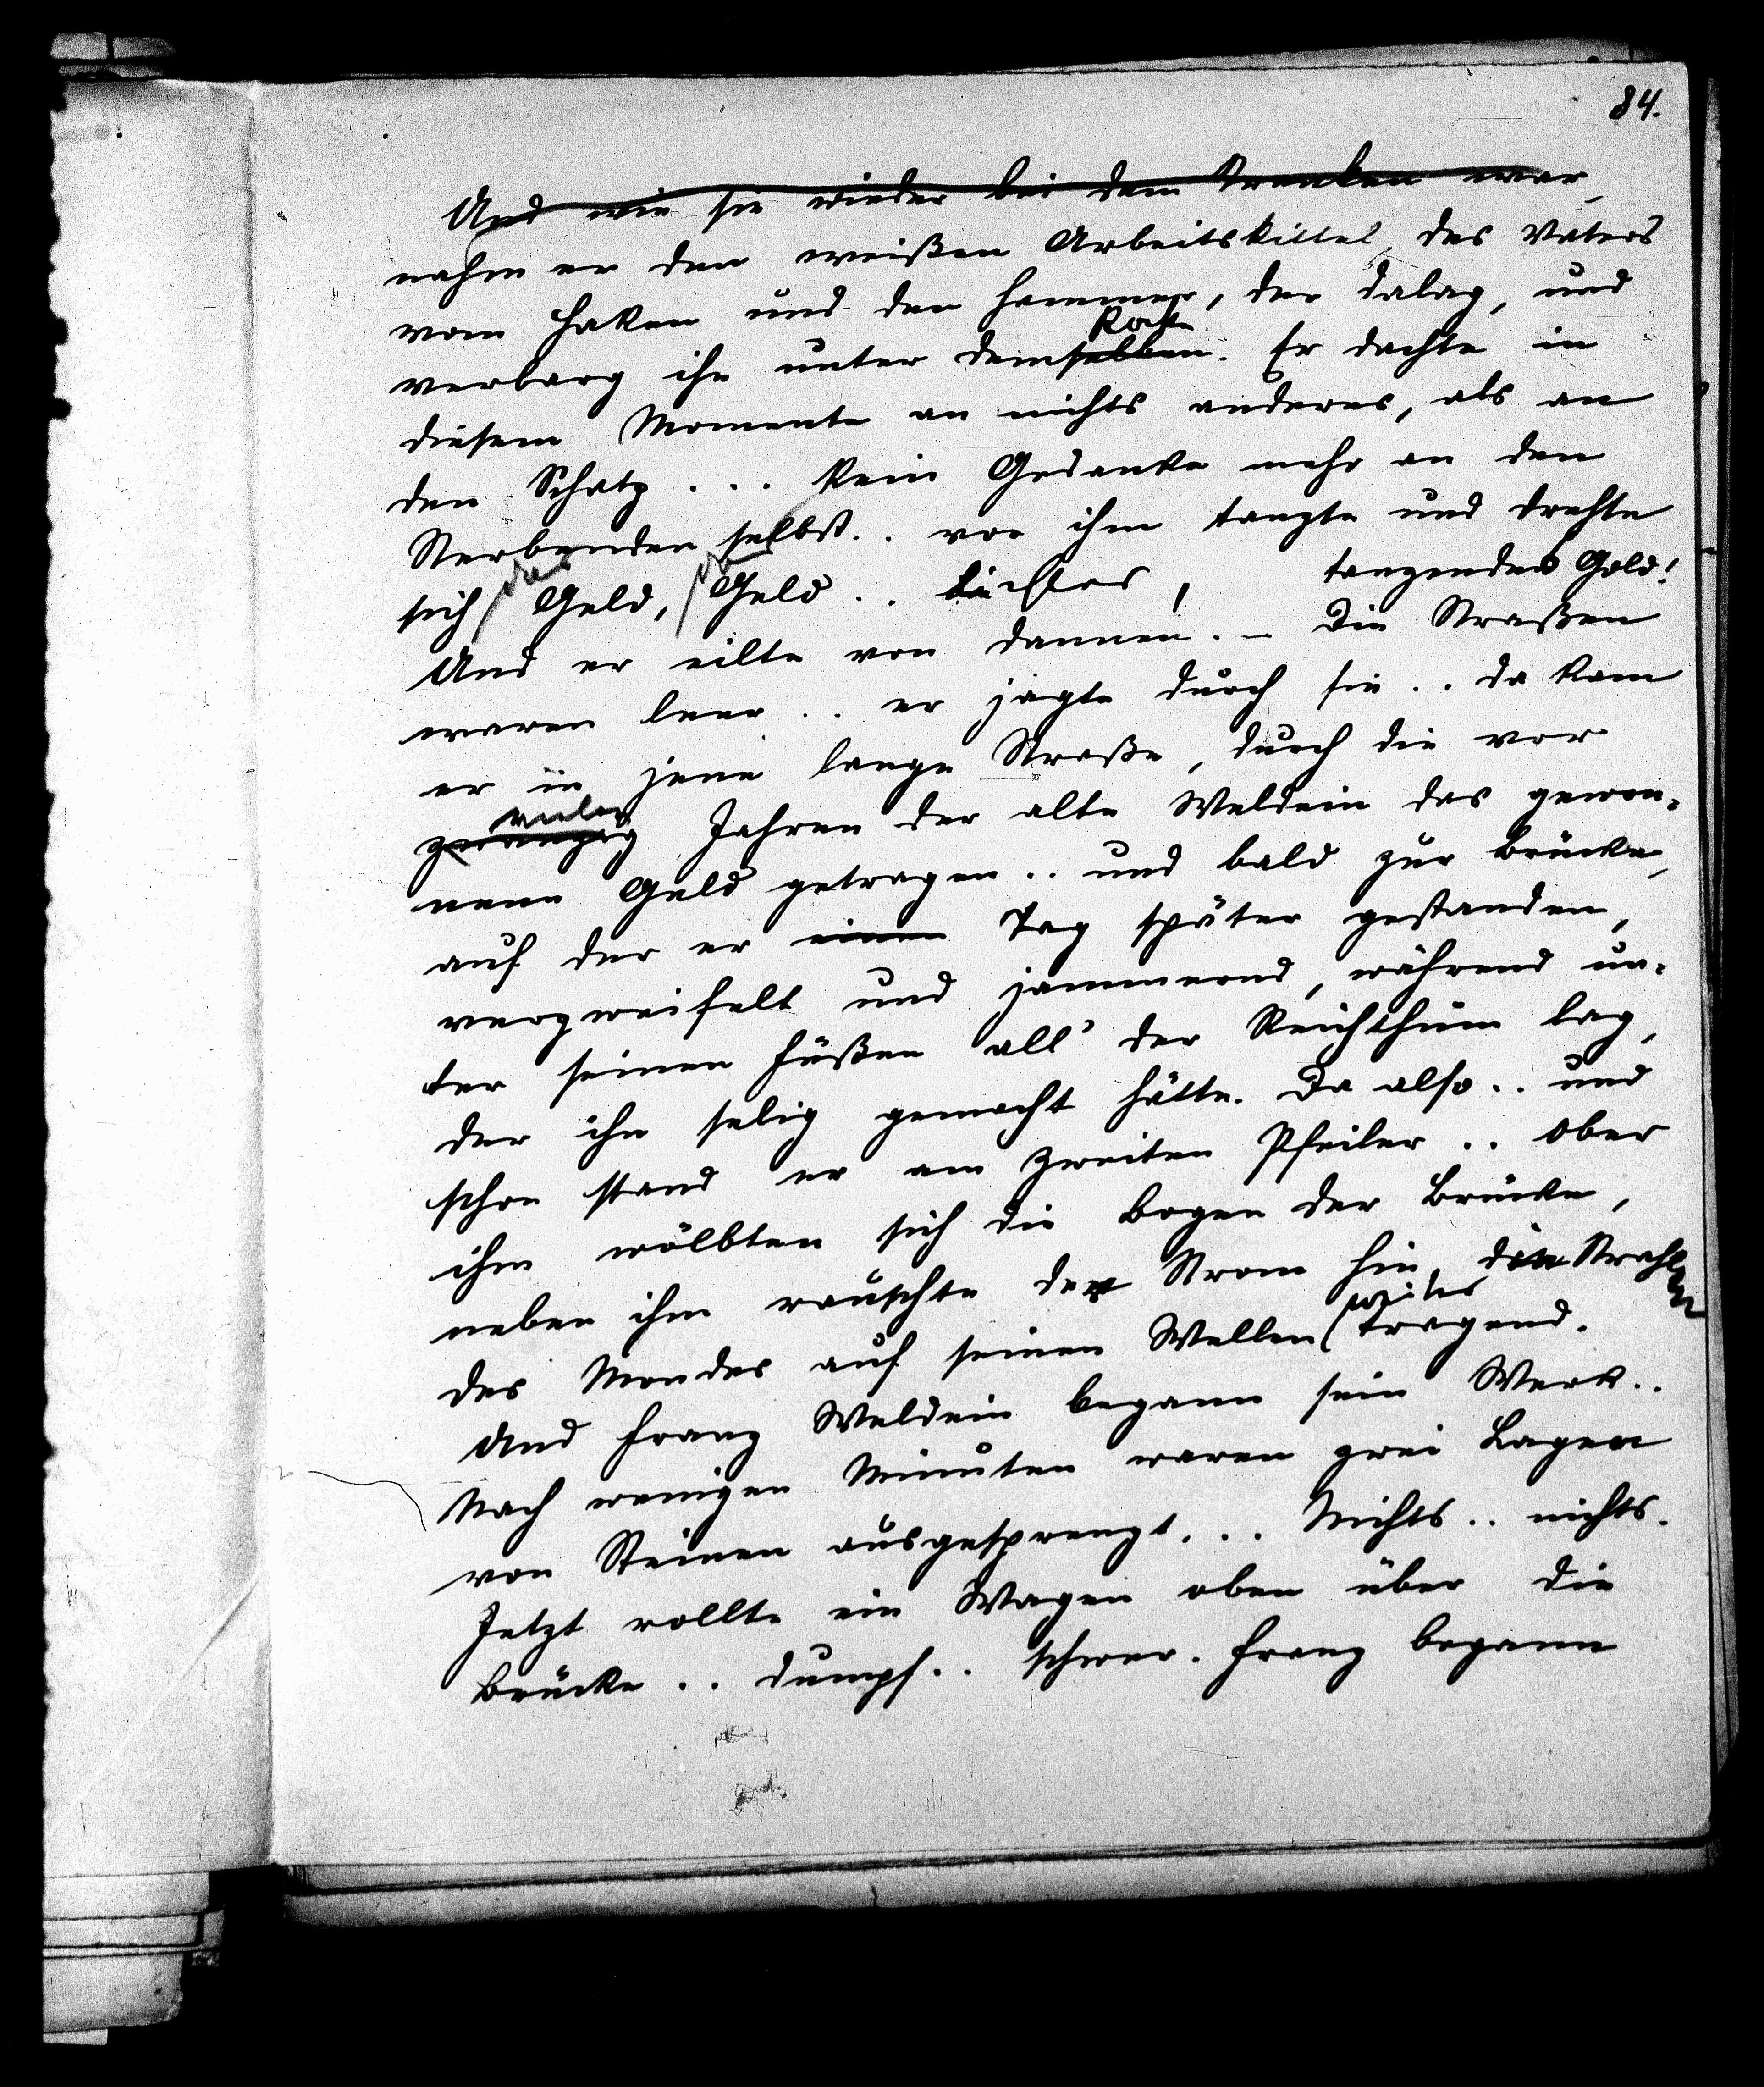 84.
Und wie sie wieder bei dem Kranken war,
nahm er den weißen Arbeitskittel des Vaters
vom Haken und den Hammer, der dalag, und
Rock
verbarg ihn unter demselben. Er dachte in
diesem Momente an nichts anderes, als an
den Schatz... Kein Gedanke mehr an den
Sterbenden selbst.. vor ihm tanzte und drehte
sich das Geld, das Geld.. lichtes, tanzendes Gold!
Und er eilte von dannen. – Die Straßen
waren leer.. er jagte durch sie.. da kam
er in jene lange Straße, durch die vor
vielen
zwanzig Jahren der alte Weldein das gewon-
nene Geld getragen.. und bald zur Brücke,
auf der er einen Tag später gestanden,
verzweifelt und jammernd, während un-
ter seinen Füßen all' der Reichthum lag,
der ihn selig gemacht hätte. Da also.. und
schon stand er am zweiten Pfeiler.. ober
ihm wölbten sich die Bogen der Brücke,
neben ihm rauschte der Strom hin, die Strahlen
weiter
des Mondes auf seinen Wellen tragend.
Und Franz Weldein begann sein Werk..
Nach wenigen Minuten waren zwei Lagen
von Steinen ausgesprengt... Nichts.. nichts.
Jetzt rollte ein Wagen oben über die
Brücke.. dumpf.. schwer. Franz begann